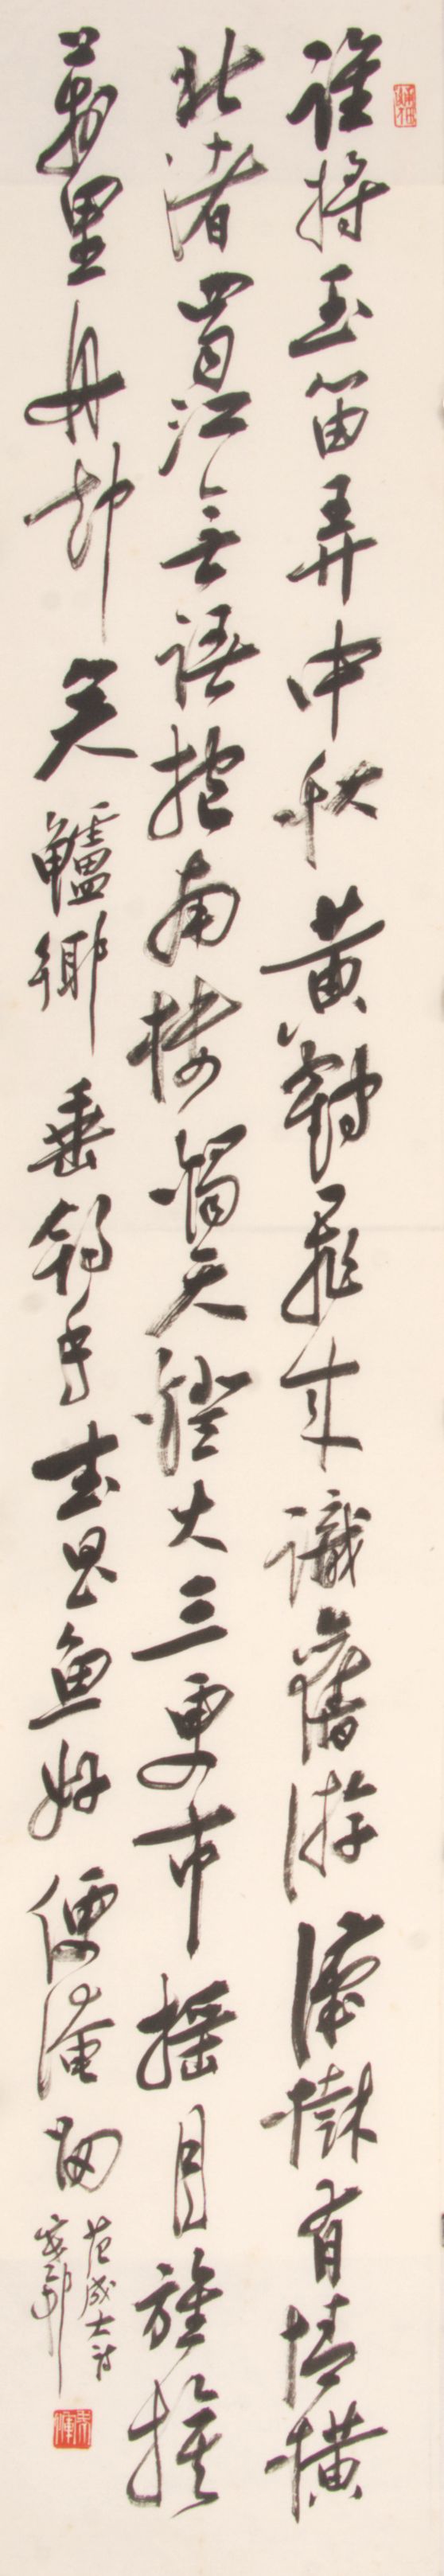 誰將玉笛弄中秋黃鶴飛來識舊游漢樹有情橫
北渚蜀江無語抱南樓燭天燈火三更市搖月旌旗
萬里舟却笑鱸鄉垂釣手武昌魚好便淹留
范成大詩